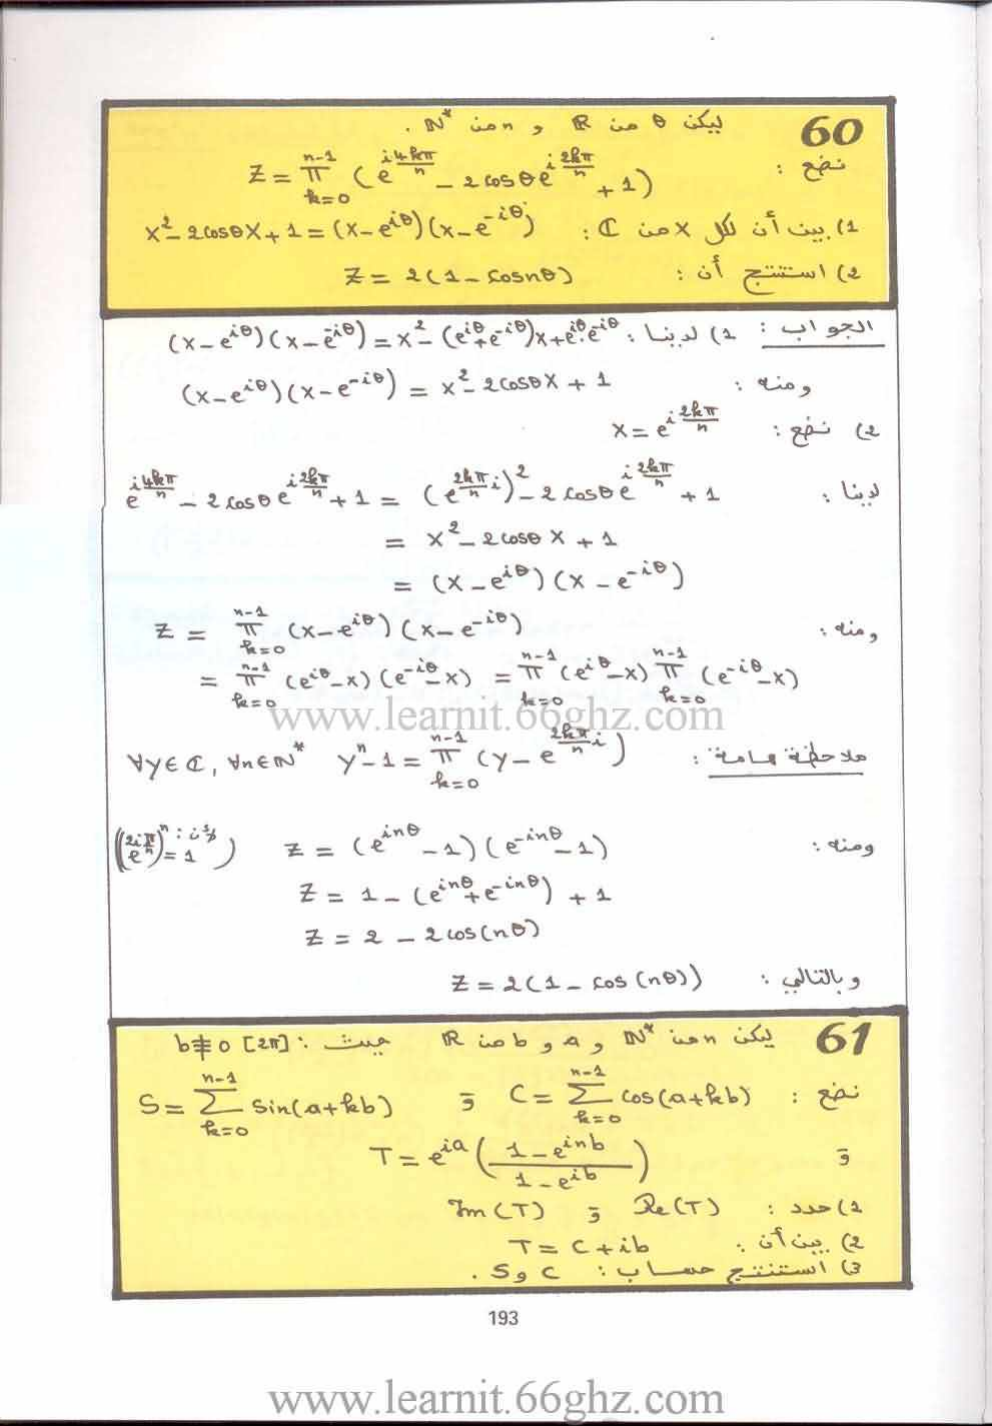 60 ليكن θ من ℝ و n من ℕ* .
نضع : Z = ∏_{k=0}^{n-1} (e^{i4kπ/n} - 2cosθe^{i2kπ/n} + 1)
1) بين أن لكل x من ℂ : x² - 2cosθx + 1 = (x - e^{iθ})(x - e^{-iθ})
2) استنتج أن : Z = 2(1 - cosnθ)
الجواب : 1) لدينا : (x - e^{iθ})(x - e^{-iθ}) = x² - (e^{iθ} + e^{-iθ})x + e^{iθ}.e^{-iθ}
ومنه : (x - e^{iθ})(x - e^{-iθ}) = x² - 2cosθx + 1
2) نضع : x = e^{i2kπ/n}
لدينا : e^{i4kπ/n} - 2cosθe^{i2kπ/n} + 1 = (e^{2kπ/n i})² - 2cosθe^{i2kπ/n} + 1
= x² - 2cosθx + 1
= (x - e^{iθ})(x - e^{-iθ})
ومنه : Z = ∏_{k=0}^{n-1} (x - e^{iθ})(x - e^{-iθ})
= ∏_{k=0}^{n-1} (e^{iθ} - x)(e^{-iθ} - x) = ∏_{k=0}^{n-1} (e^{iθ} - x) ∏_{k=0}^{n-1} (e^{-iθ} - x)
www.learnit.66ghz.com
ملاحظة هامة : ∀y∈ℂ, ∀n∈ℕ* y^n - 1 = ∏_{k=0}^{n-1} (y - e^{2kπ/n i})
ومنه : Z = (e^{inθ} - 1)(e^{-inθ} - 1) (لأن : (e^{2iπ/n})^n = 1)
Z = 1 - (e^{inθ} + e^{-inθ}) + 1
Z = 2 - 2cos(nθ)
وبالتالي : Z = 2(1 - cos(nθ))
61 ليكن n من ℕ* و a و b من ℝ حيث : b≢0 [2π]
نضع : C = ∑_{k=0}^{n-1} cos(a+kb) و S = ∑_{k=0}^{n-1} sin(a+kb)
و T = e^{ia}((1 - e^{inb})/(1 - e^{ib}))
1) حدد : Re(T) و Im(T)
2) بين أن : T = C + ib
3) استنتج حساب : C و S .
193
www.learnit.66ghz.com